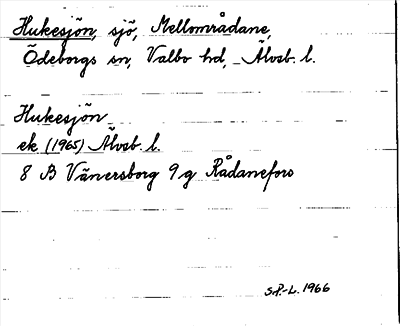 Hukesjön, sjö, Mellområdane,
Ödeborgs sn, Valbo hd, Älvsb. l.
Hukesjön
ek (1965) Älvsb. l.
8 B Vänersborg 9 g Rådanefors
S.P.-L. 1966